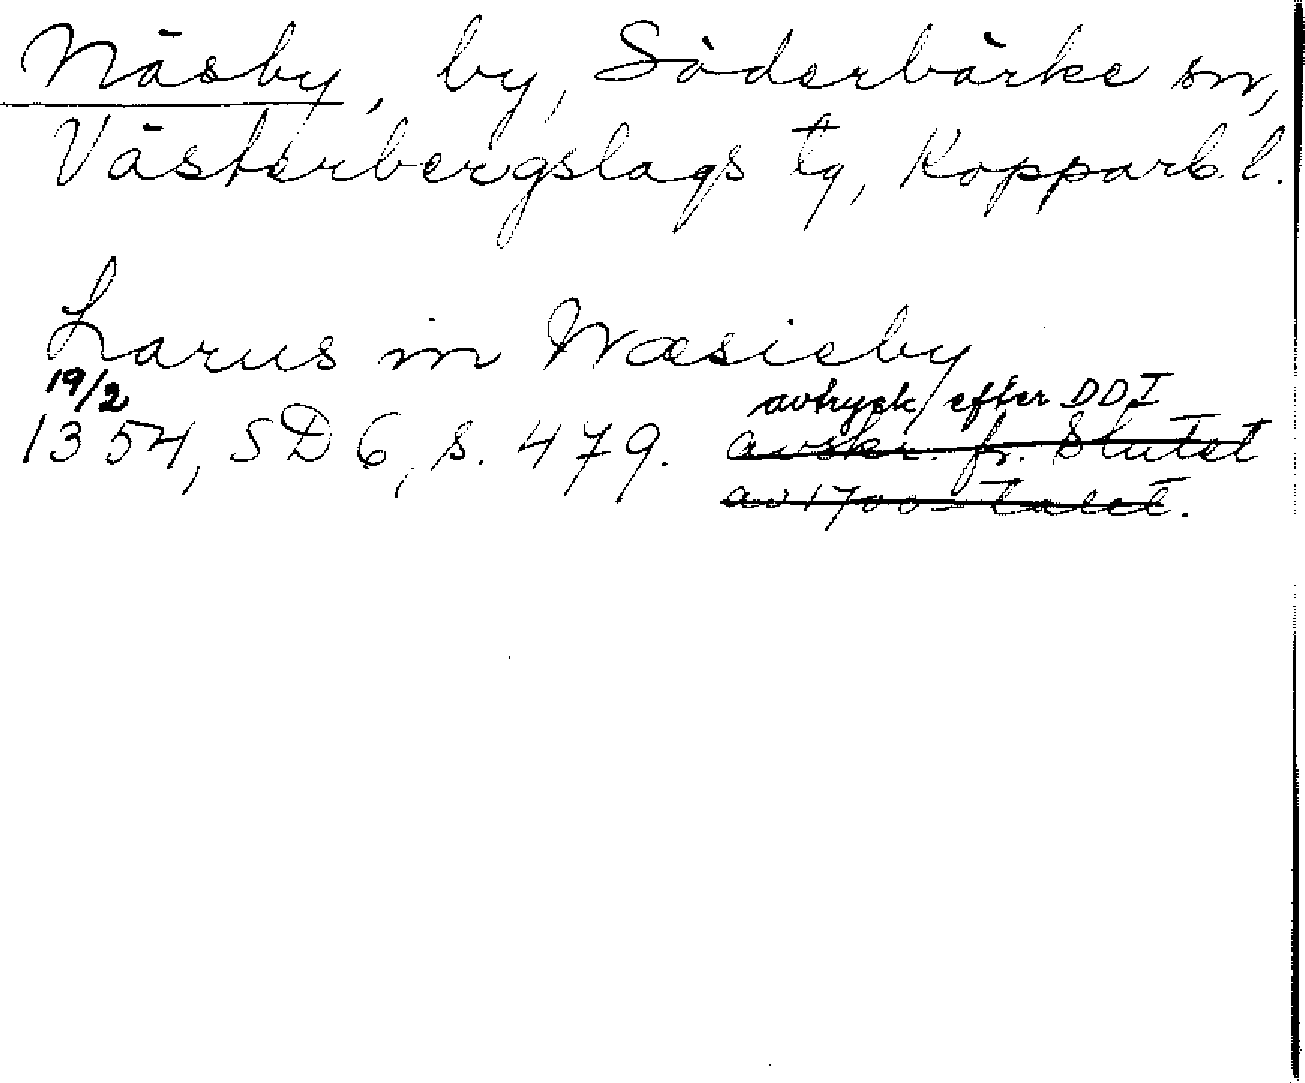 Näsby, by, Söderbärke sn,
Västerbergslags tg, Kopparb. l.
Larus in Næsieby
19/2
1354, SD 6, s. 479.
avtryck efter DD I
avskr. fr. slutet
av 1700-talet.